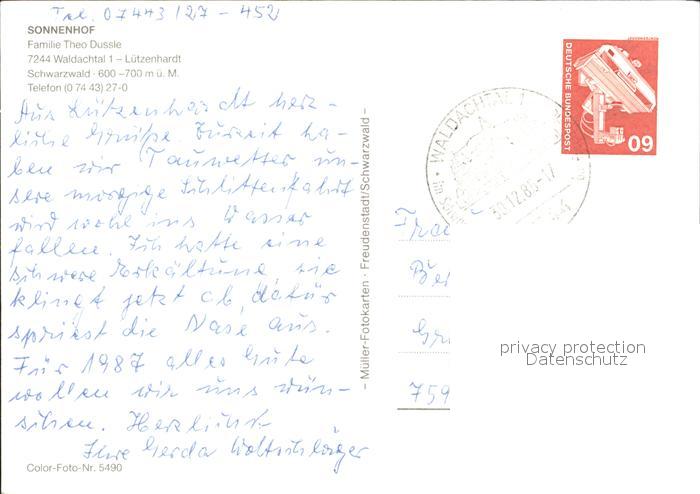 Tel. 07443 / 27 - 452
SONNENHOF
Familie Theo Dussle
7244 Waldachtal 1 – Lützenhardt
Schwarzwald · 600 –700 m ü. M.
Telefon (0 74 43) 27-0
Aus Lützenhardt herz-
liche Grüße. Zurzeit ha-
ben wir Tauwetter un-
sere morgige Schlittenfahrt
wird wohl ins Wasser
fallen. Ich hatte eine
schwere Erkältung, sie
klingt jetzt ab, dafür
spriest die Nase aus.
Für 1987 alles Gute
wollen wir uns wün-
schen. Herzlichst
Ihre Gerda
Color-Foto-Nr. 5490
– Müller-Fotokarten · Freudenstadt/Schwarzwald –
WALDACHTAL 1
30.12.86-17
DEUTSCHE BUNDESPOST
60
759
privacy protection
Datenschutz